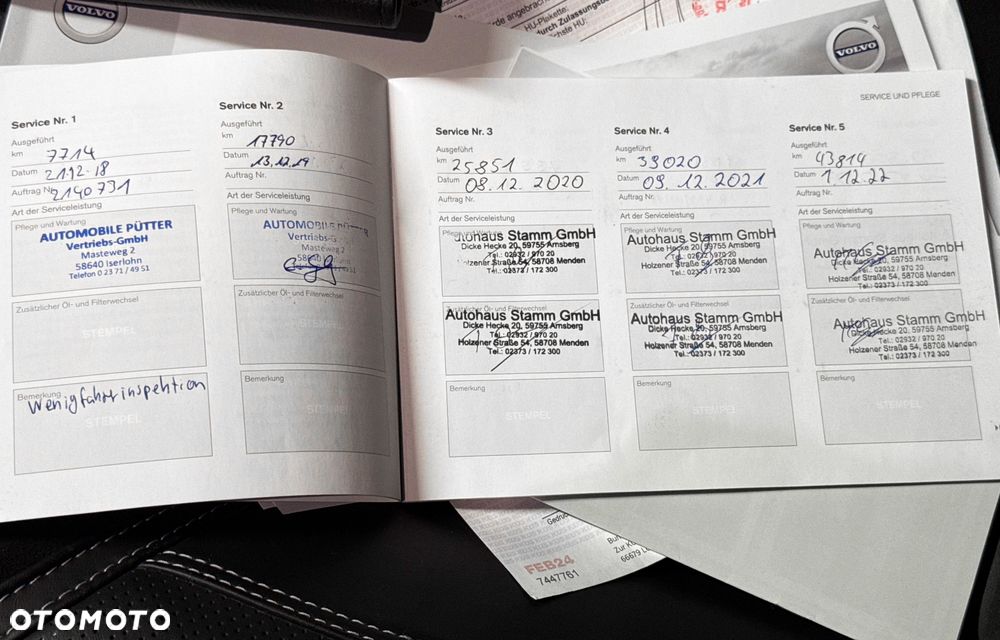 VOLVO
rde angebrach
HU-Plakette:
durch Zulassungs
chste HU:
VOLVO
SERVICE UND PFLEGE
Service Nr. 1
Ausgeführt
km 7714
Datum 21.12.18
Auftrag Nr. 2140731
Art der Serviceleistung
Pflege und Wartung
AUTOMOBILE PÜTTER
Vertriebs-GmbH
Masteweg 2
58640 Iserlohn
Telefon 0 23 71 / 49 51
Zusätzlicher Öl- und Filterwechsel
STEMPEL
Bemerkung
Wenigfahrerinspektion
STEMPEL
Service Nr. 2
Ausgeführt
km 17790
Datum 13.12.19
Auftrag Nr.
Art der Serviceleistung
Pflege und Wartung
AUTOMOBILE PÜTTER
Vertriebs-G
Masteweg 2
58640 Iserlohn
Zusätzlicher Öl- und Filterwechsel
STEMPEL
Bemerkung
STEMPEL
Service Nr. 3
Ausgeführt
km 25851
Datum 08.12.2020
Auftrag Nr.
Art der Serviceleistung
Pflege und Wartung
Autohaus Stamm GmbH
Dicke Hecke 20, 59755 Arnsberg
Tel.: 02932 / 970 20
Holzener Straße 54, 58708 Menden
Tel.: 02373 / 172 300
Zusätzlicher Öl- und Filterwechsel
Autohaus Stamm GmbH
Dicke Hecke 20, 59755 Arnsberg
Tel.: 02932 / 970 20
Holzener Straße 54, 58708 Menden
Tel.: 02373 / 172 300
Bemerkung
STEMPEL
Service Nr. 4
Ausgeführt
km 33020
Datum 09.12.2021
Auftrag Nr.
Art der Serviceleistung
Pflege und Wartung
Autohaus Stamm GmbH
Dicke Hecke 20, 59755 Arnsberg
Tel.: 02932 / 970 20
Holzener Straße 54, 58708 Menden
Tel.: 02373 / 172 300
Zusätzlicher Öl- und Filterwechsel
Autohaus Stamm GmbH
Dicke Hecke 20, 59755 Arnsberg
Tel.: 02932 / 970 20
Holzener Straße 54, 58708 Menden
Tel.: 02373 / 172 300
Bemerkung
STEMPEL
Service Nr. 5
Ausgeführt
km 43814
Datum 1.12.22
Auftrag Nr.
Art der Serviceleistung
Pflege und Wartung
Autohaus Stamm GmbH
Dicke Hecke 20, 59755 Arnsberg
Tel.: 02932 / 970 20
Holzener Straße 54, 58708 Menden
Tel.: 02373 / 172 300
Zusätzlicher Öl- und Filterwechsel
Autohaus Stamm GmbH
Dicke Hecke 20, 59755 Arnsberg
Tel.: 02932 / 970 20
Holzener Straße 54, 58708 Menden
Tel.: 02373 / 172 300
Bemerkung
STEMPEL
Gedruc
FEB24
7447761
Zur K
66679 L
OTOMOTO